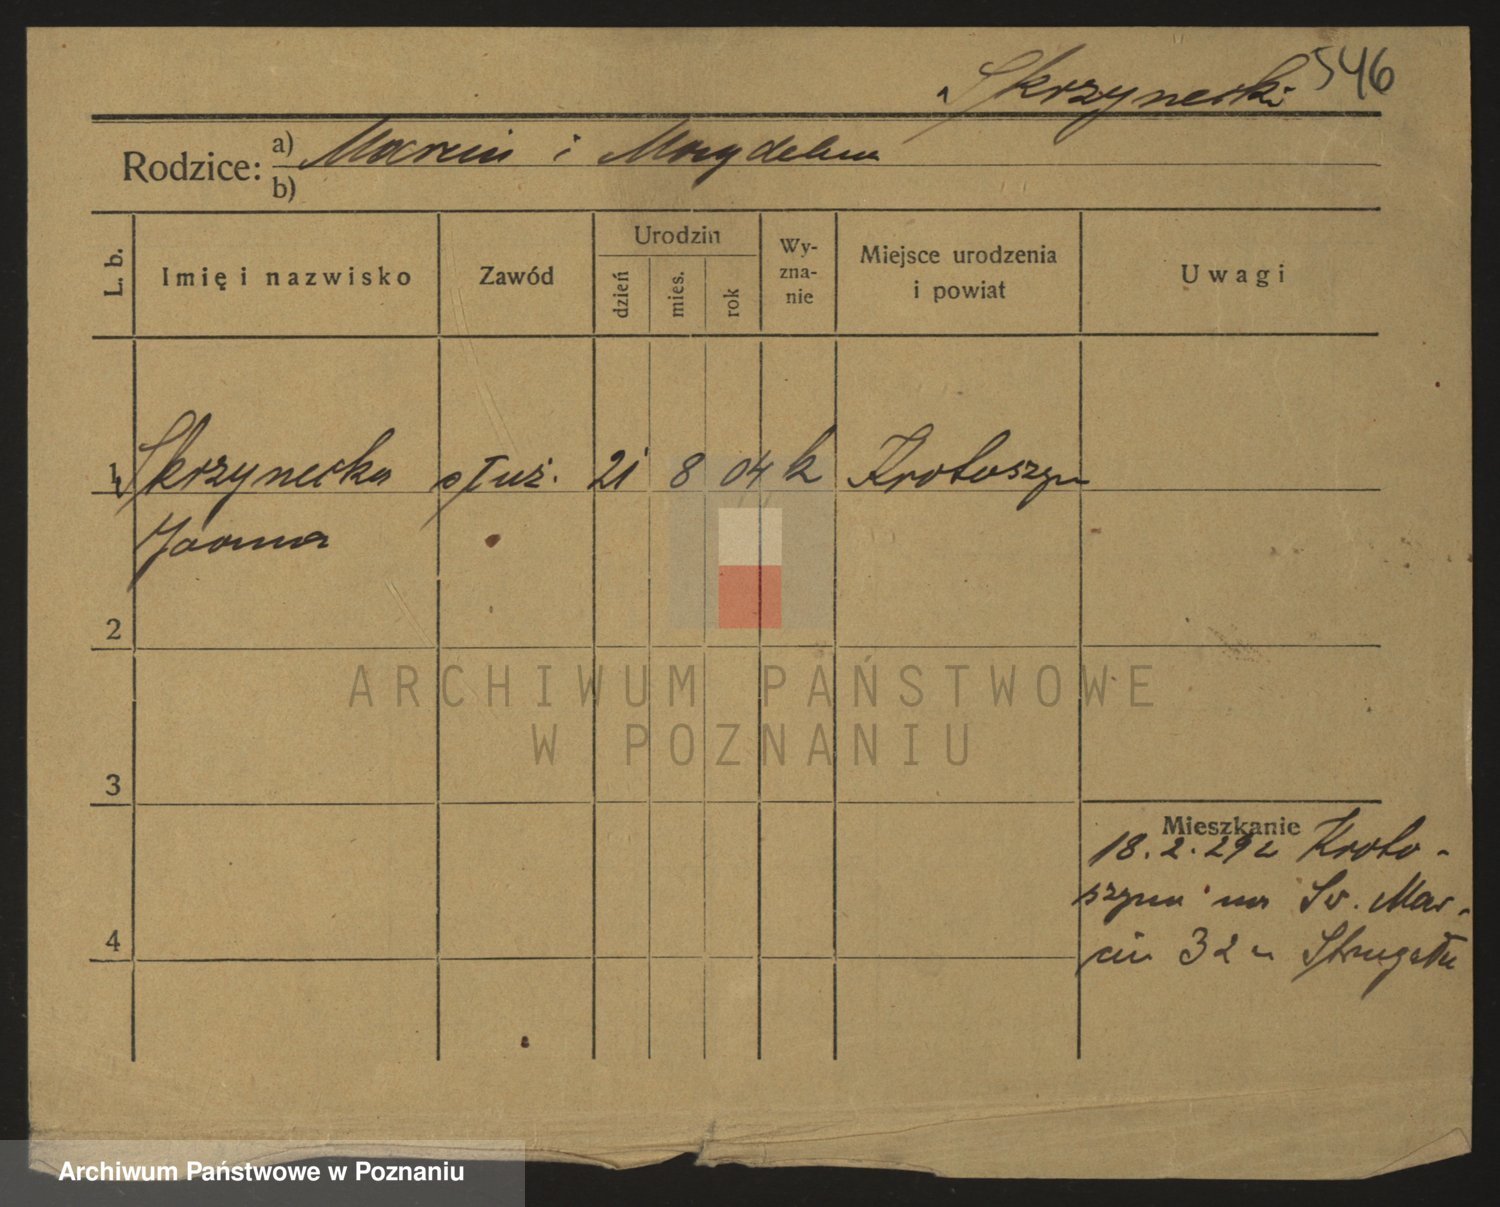 Skrzynecki 546
Rodzice: a) Marcin i Magdalena
b)
L. b. Imię i nazwisko Zawód Urodzin dzień mies. rok Wyznanie Miejsce urodzenia i powiat Uwagi
1 Skrzynecka służ. 21 8 04 k Krotoszyn
Joanna
2
3
4
Mieszkanie
18.2.29 z Kroto-
szyna na Św. Mar-
cin 32 u Strugała
ARCHIWUM PAŃSTWOWE
W POZNANIU
Archiwum Państwowe w Poznaniu